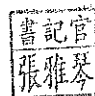 書記官
張雅琴